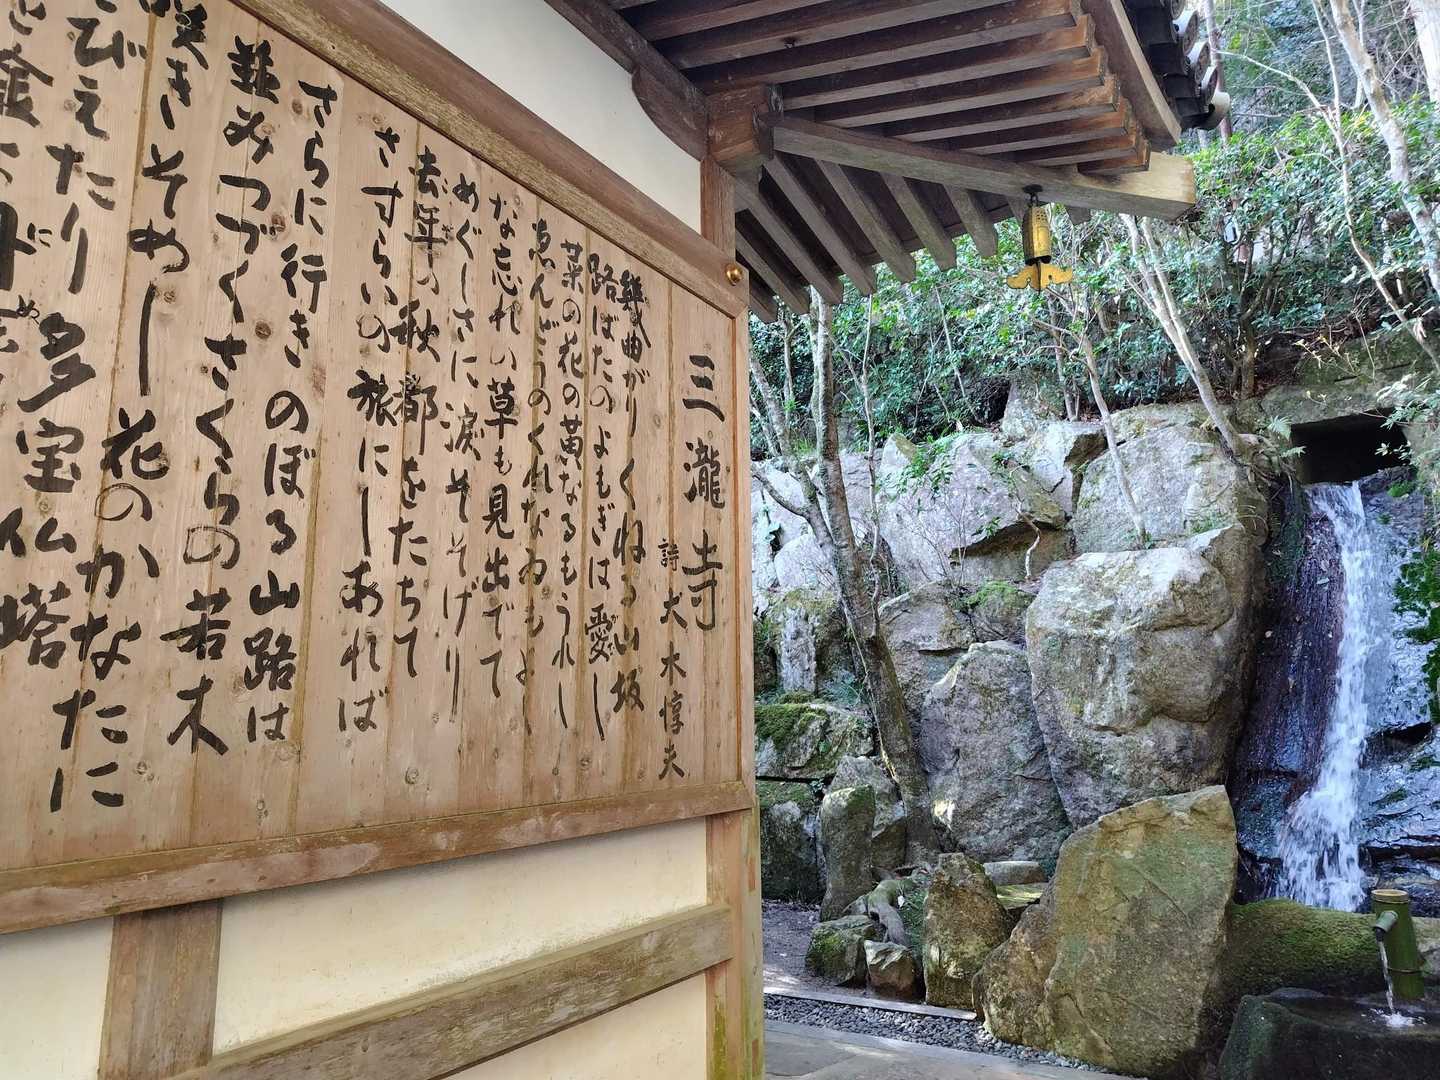 三瀧寺
詩 大木惇夫
幾曲がりくねる山坂
路ばたのよもぎは愛し
菜の花の黄なるもうれし
えんどうのくれなゐもよし
な忘れい草も見出でて
めぐしさに涙そそげり
去年の秋都をたちて
さすらいの旅にしあれば
さらに行きのぼる山路は
並みつづくさくらの若木
咲きそめし花のかなたに
そびえたり多宝仏塔